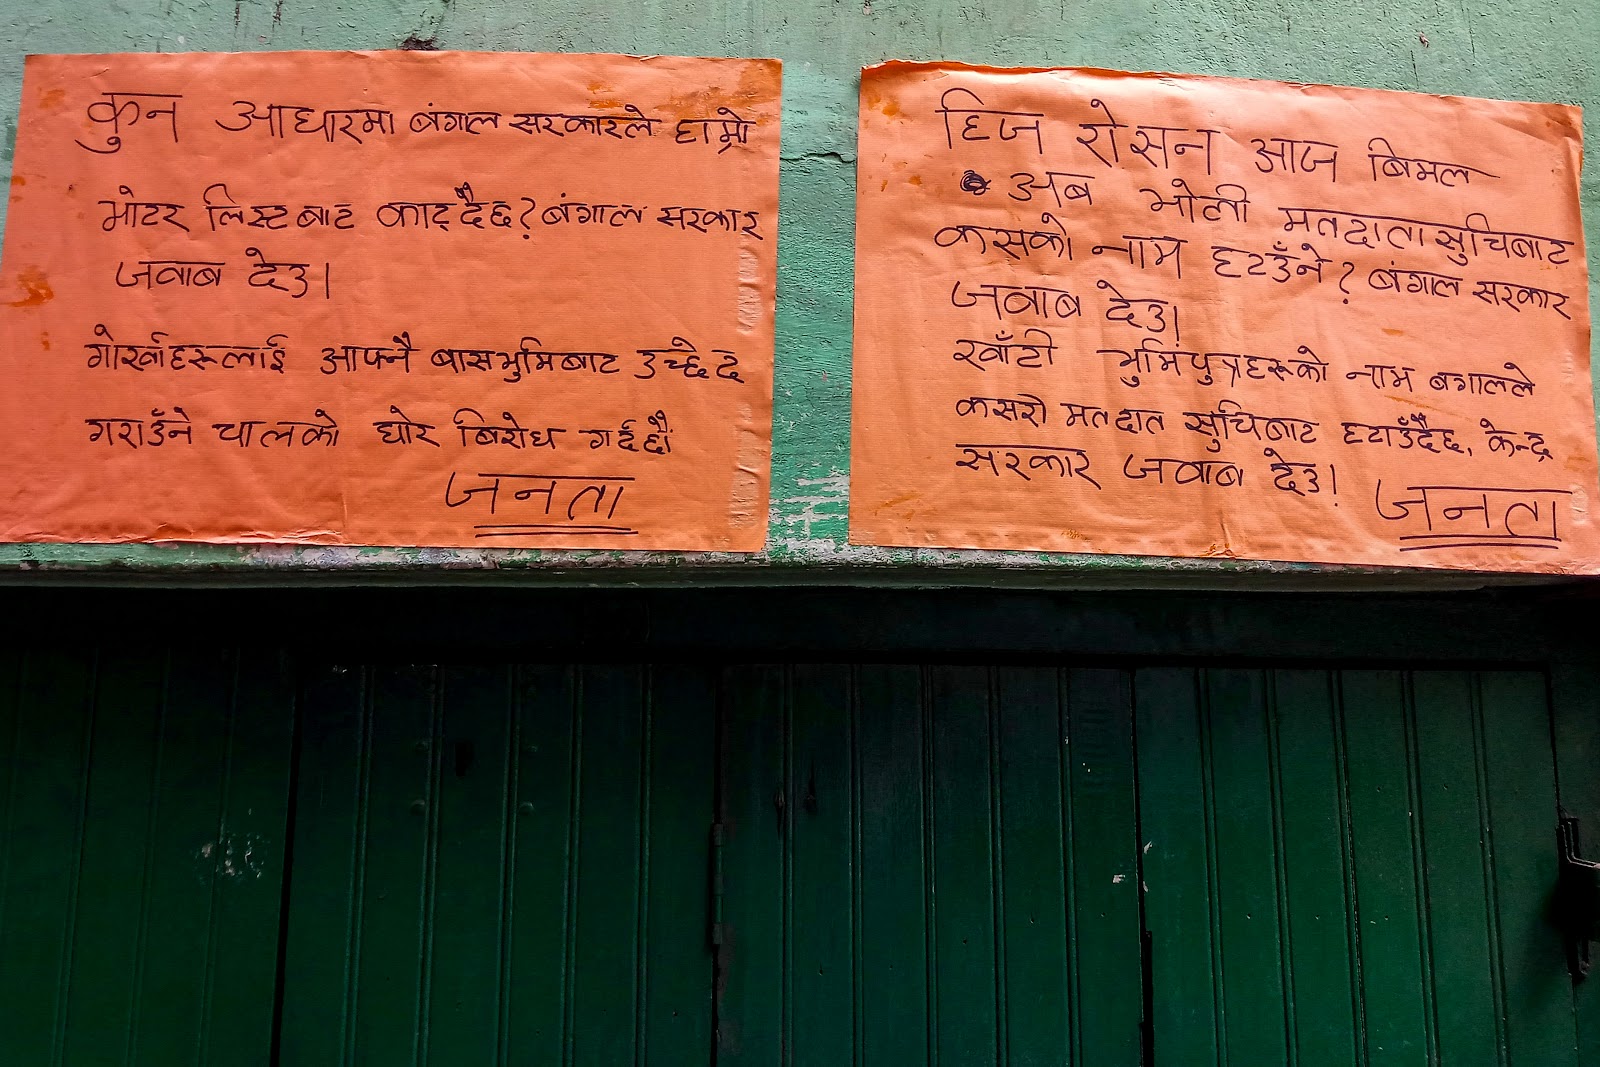 कुन आधारमा बंगाल सरकारले हाम्रो
भोटर लिस्टबाट काट्दैछ? बंगाल सरकार
जवाब देउ।
गोर्खाहरूलाई आफ्नै बासभुमिबाट उच्छेद
गराउँने चालको घोर बिरोध गर्दछौं
जनता
हिज रोसन आज बिमल
अब भोली मतदाता सुचिबाट
कसको नाम हटाउँने? बंगाल सरकार
जवाब देउ।
खाँटी भुमिपुत्रहरूको नाम बंगालले
कसरी मतदात सुचिबाट हटाउँदैछ, केन्द्र
सरकार जवाब देउ।
जनता